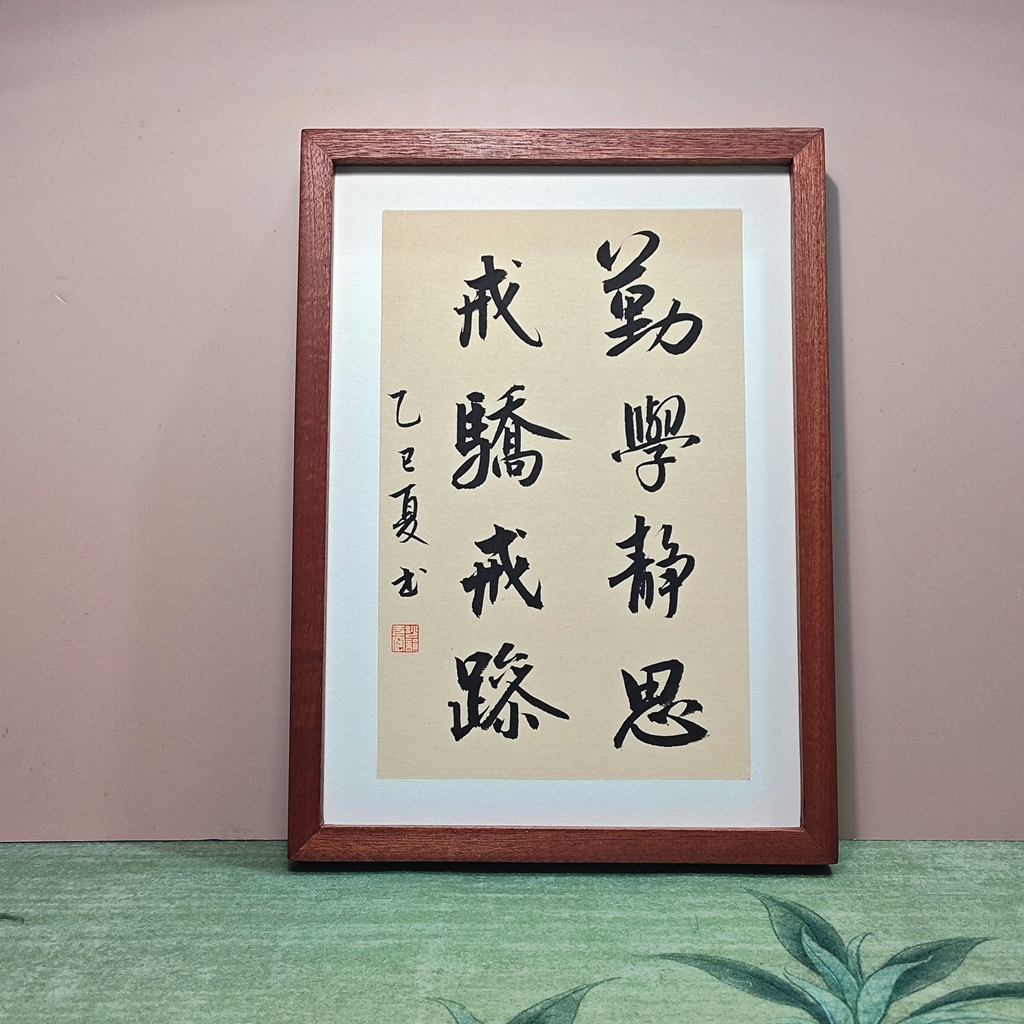 勤學静思
戒驕戒躁
乙巳夏书